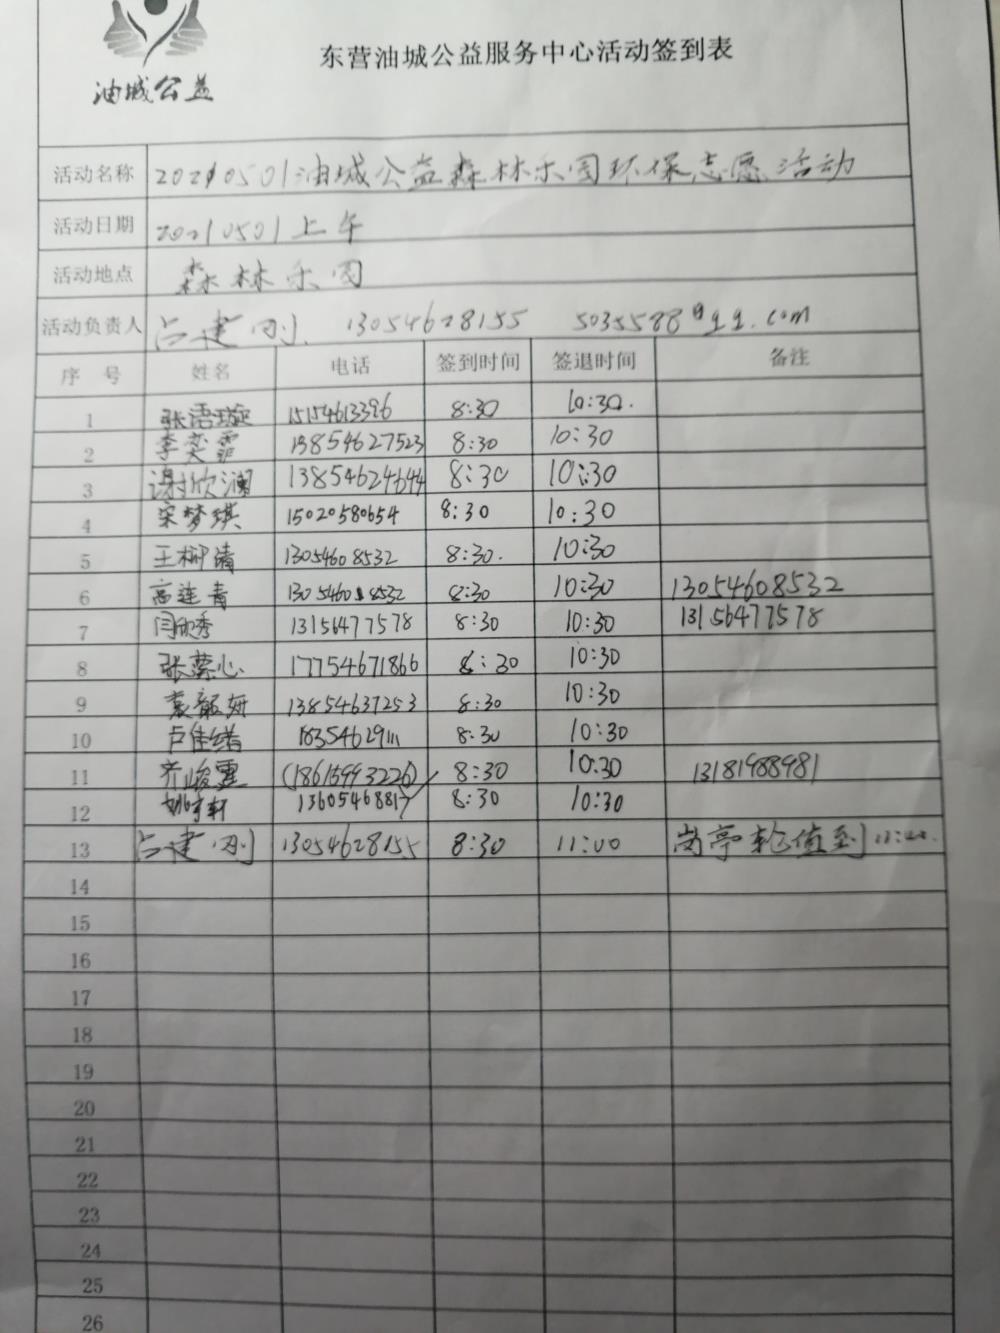 油城公益
东营油城公益服务中心活动签到表
活动名称 20210501油城公益森林乐园环保志愿活动
活动日期 20210501上午
活动地点 森林乐园
活动负责人 吕建刚 13054628155 5035588@qq.com
序号 姓名 电话 签到时间 签退时间 备注
1 张语璇 15154613396 8:30 10:30.
2 李奕霏 13854627523 8:30 10:30
3 谢欣澜 13854624644 8:30 10:30
4 宋梦琪 15020580654 8:30 10:30
5 王柳清 13054608532 8:30. 10:30
6 高连青 13054608532 8:30 10:30 13054608532
7 闫欣秀 13156477578 8:30 10:30 13156477578
8 张蕊心 17754671866 8:30 10:30
9 袁韶妍 13854637253 8:30 10:30
10 卢佳绪 18354629111 8:30 10:30
11 齐峻霆 (18615993226) 8:30 10:30 13181988981
12 姚宇轩 13605468817 8:30 10:30
13 吕建刚 13054628155 8:30 11:00 岗亭轮值到11:00.
14
15
16
17
18
19
20
21
22
23
24
25
26